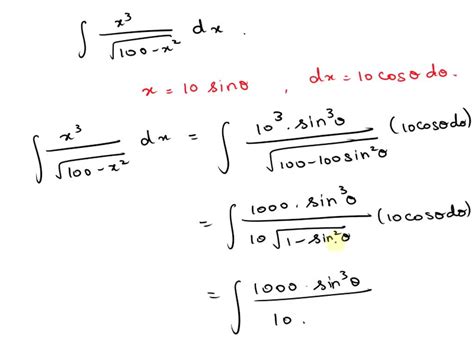 ∫ x³/√(100-x²) dx.
x = 10 sinθ , dx = 10 cosθ dθ.
∫ x³/√(100-x²) dx = ∫ 10³ · sin³θ/√(100-100sin²θ) (10cosθdθ)
= ∫ 1000 · sin³θ/10√(1-sin²θ) (10cosθdθ)
= ∫ 1000 · sin³θ/10.